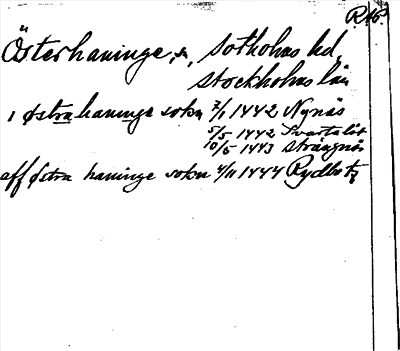 RAp.
Österhaninge, sn, Sotholms hd,
Stockholms län
i østra haninge sokn 7/1 1442 Nynäs
5/5 1442 Svartalöt
10/5 1443 Strängnäs
aff østra haninge sokn 4/11 1444 Rydbo